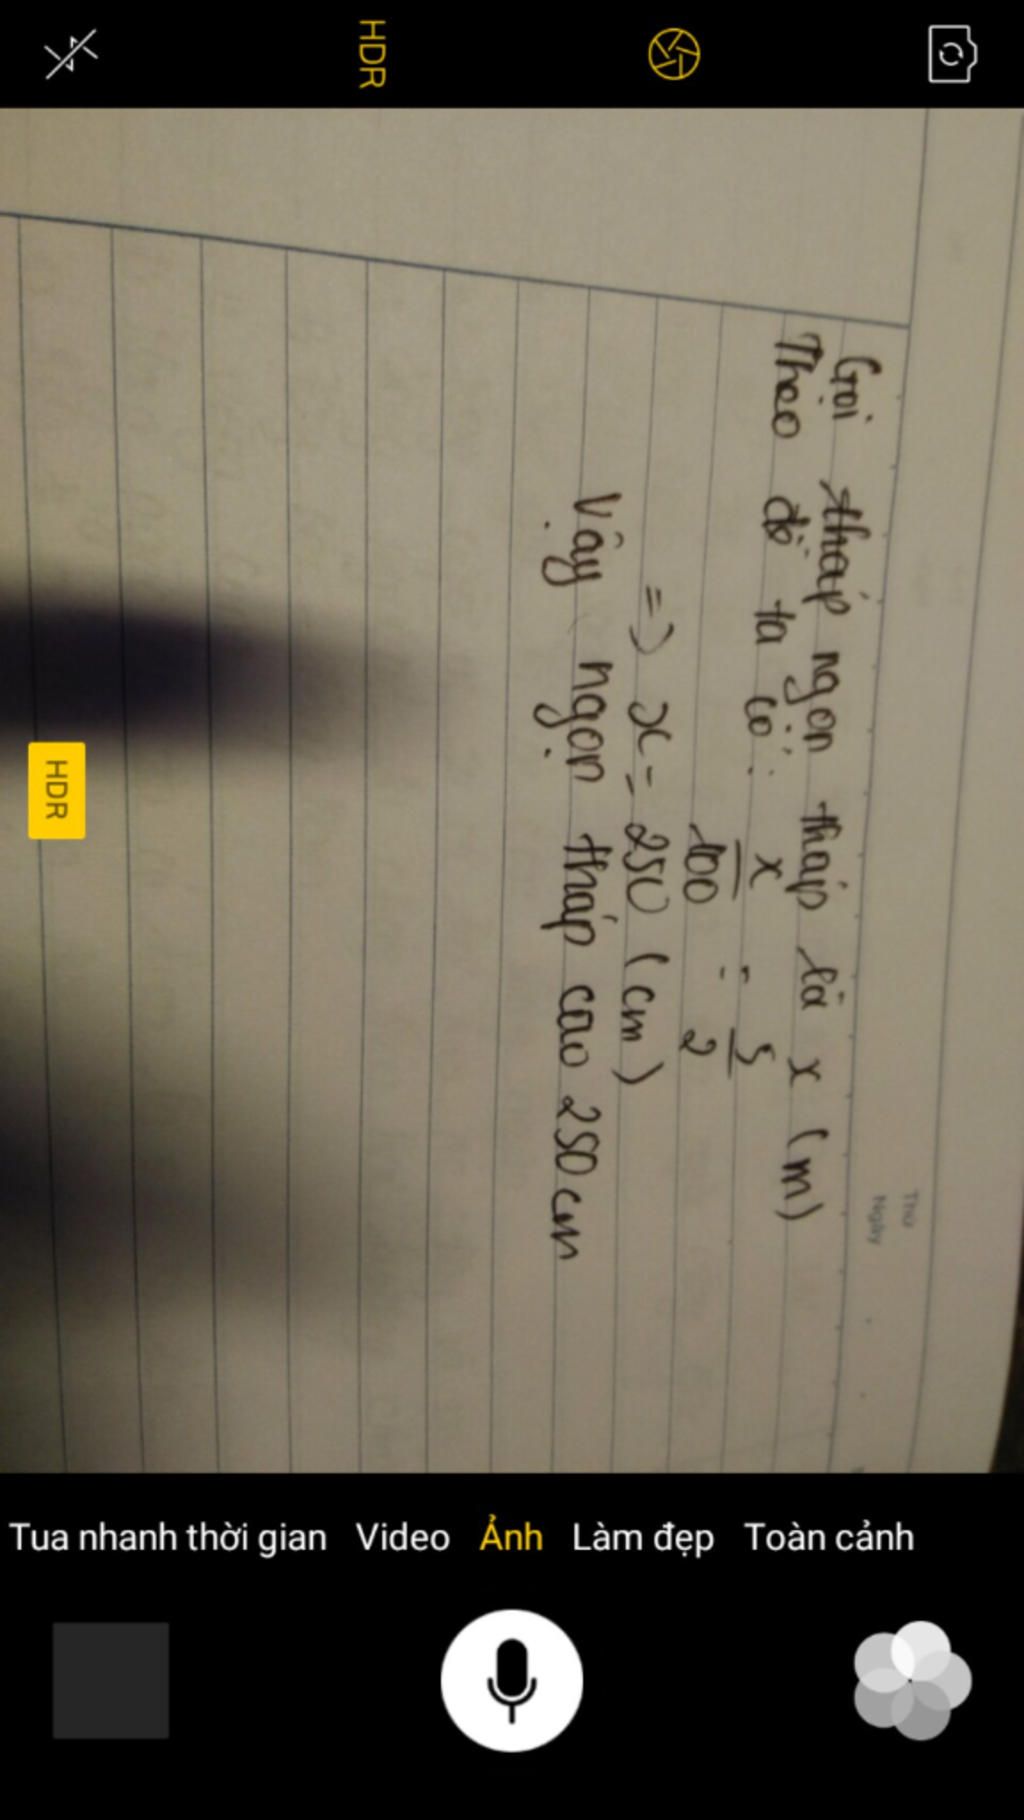 HDR
Thứ
Ngày
Gọi tháp ngọn tháp là x (m)
Theo đề ta có: x/100 = 5/2
=> x = 250 (cm)
Vậy ngọn tháp cao 250cm
HDR
Tua nhanh thời gian Video Ảnh Làm đẹp Toàn cảnh